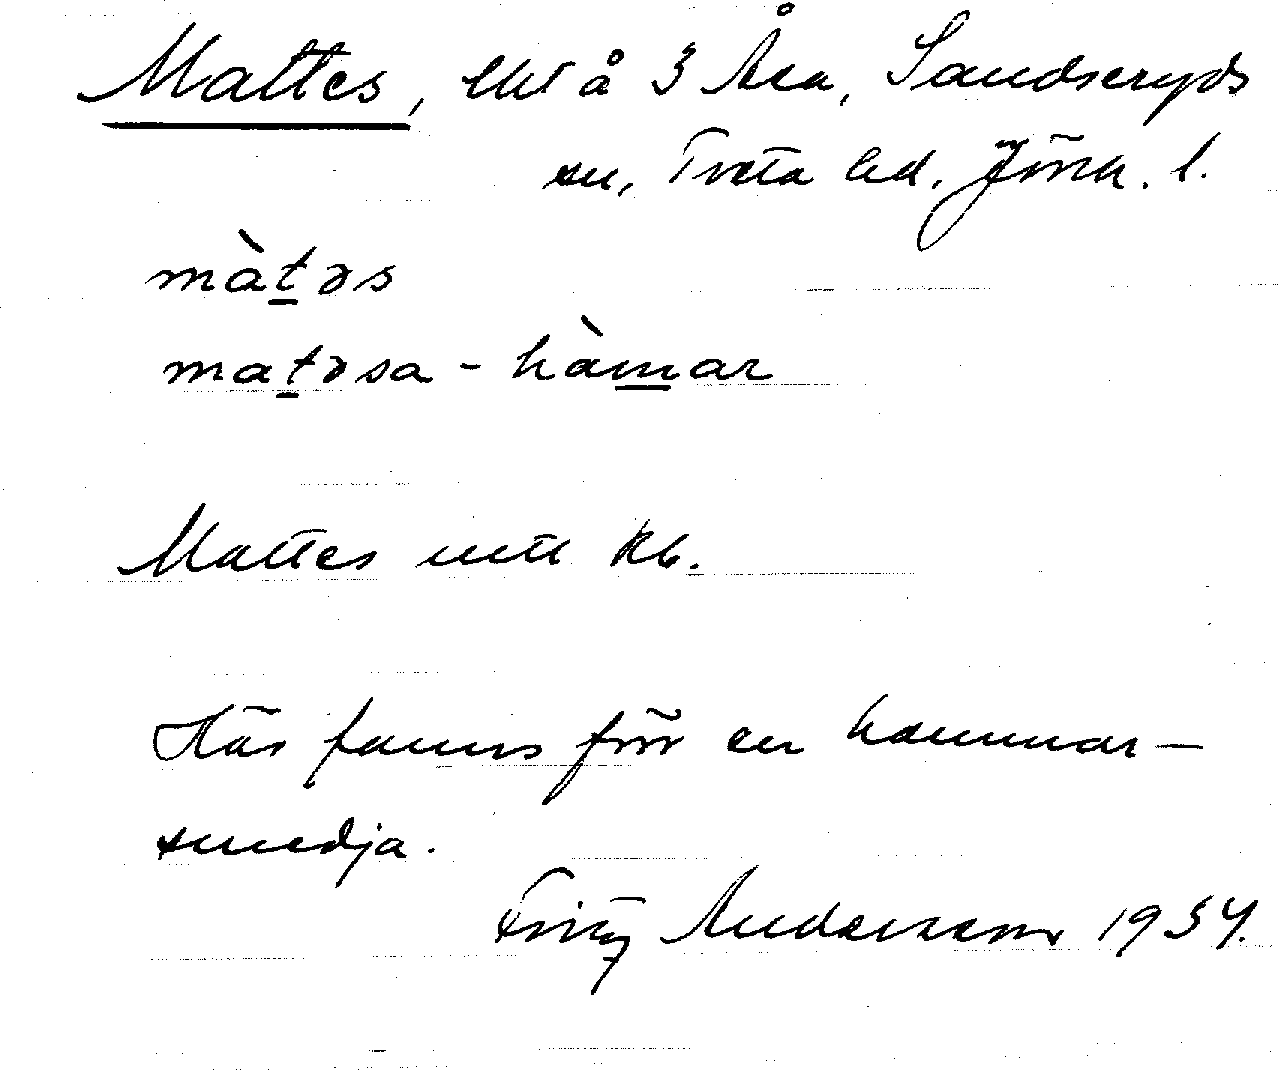 Mattes, lht å 3 Åsa, Sandseryds
sn, Tveta hd, Jönk. l.
màtəs
matəsa - hàmar
Mattes utt kb.
Här fanns förr en hammar-
smedja.
Fritz Andersson 1934.